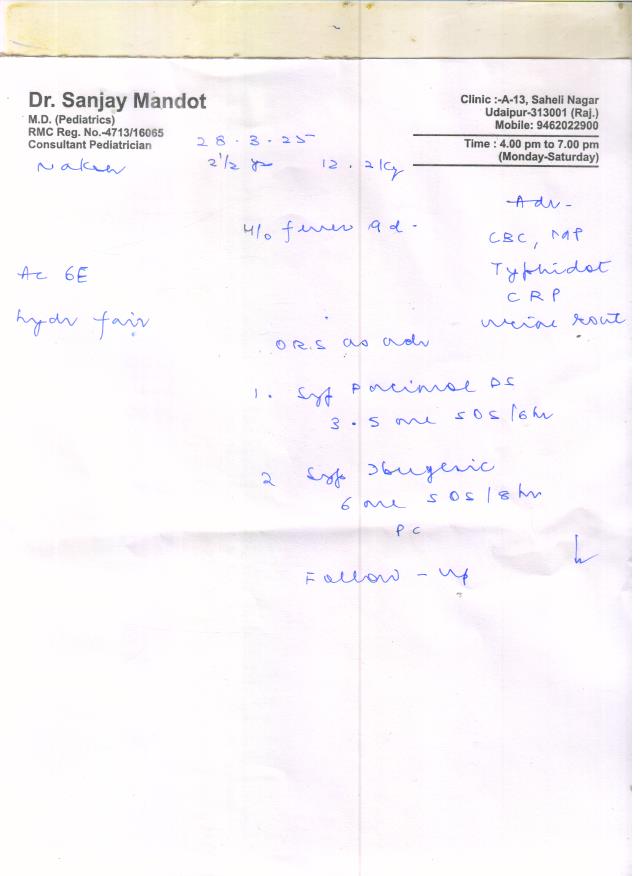 Dr. Sanjay Mandot
M.D. (Pediatrics)
RMC Reg. No.-4713/16065
Consultant Pediatrician
Clinic :-A-13, Saheli Nagar
Udaipur-313001 (Raj.)
Mobile: 9462022900
Time : 4.00 pm to 7.00 pm
(Monday-Saturday)
28.3.25
2 1/2 yr 12.2 kg
Adv-
H/o fever 9d.
CBC, MP
Typhidot
CRP
urine rout
Ac 6E
hydr fair
ORS as adv
1. Syp Pacimol DS
3.5 ml SOS/6hr
2 Syp Ibugesic
6 ml SOS/8hr
PC
Follow-up